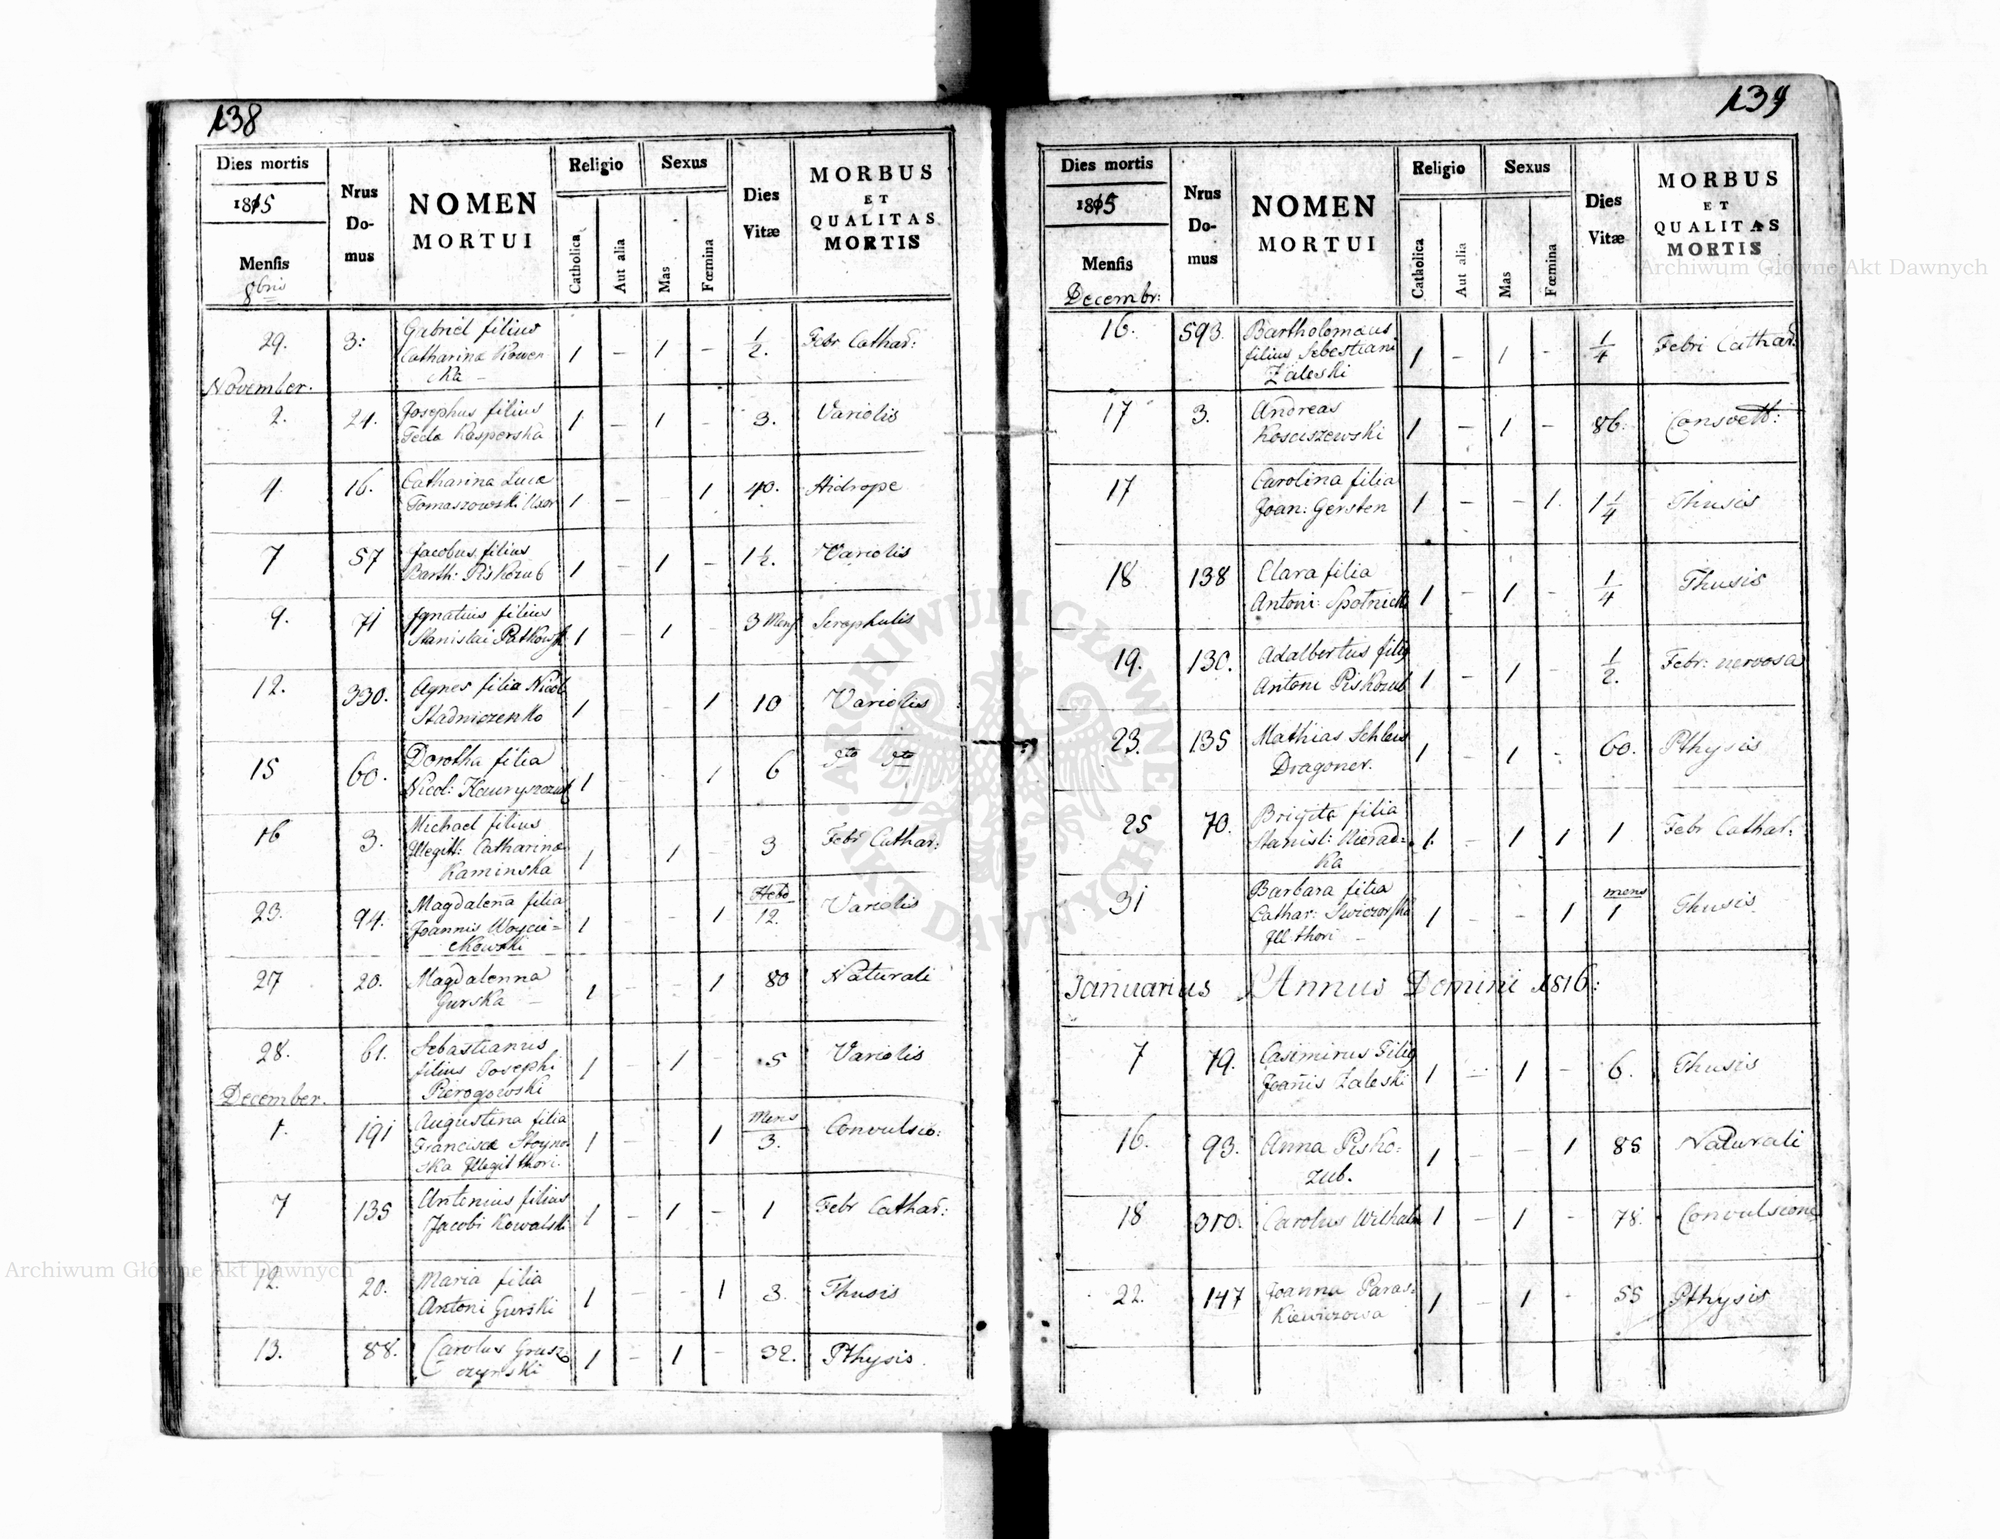 138
Dies mortis
1815
Mensis
8bris
Nrus
Do-
mus
NOMEN
MORTUI
Religio
Catholica
Aut alia
Sexus
Mas
Fœmina
Dies
Vitæ
MORBUS
ET
QUALITAS
MORTIS
29. 3: Gabriel filius
Catharina
1 – 1 – 1/2. Febr Cathar:
November.
2. 24. Josephus filius
Tecla Kasperska 1 – 1 – 3. Variolis
4. 16. Catharina Lucæ
Tomaszowski Uxor 1 – – 1 40. Hidrope
7 57 Jacobus filius
Barth: Piskozub 1 – 1 – 1 1/2. Variolis
9. 71 Ignatius filius
Stanislai 1 – 1 – 3 Mens
12. 330. Agnes filia Nicol:
Stadniczenko 1 – – 1 10 Variolis
15 60. Dorotha filia
Nicol: 1 – – 1 6 dto dto
16 3. Michael filius
Illegitt: Catharinæ
Kaminska 1 – 1 – 3 Febr Cathar:
23. 94. Magdalena filia
Joannis Woycie=
chowski 1 – – 1 Hebd 12. Variolis
27 20. Magdalenna
Gurska – 1 – – 1 80 Naturali
28. 61. Sebastianus
filius Josephi
Pierogowski 1 – 1 – 5 Variolis
December.
1. 191 Augustina filia
Francisca
Illegit thori. 1 – – 1 Mens 3. Convulsio:
7 135 Antonius filius
Jacobi Kowalski 1 – 1 – 1 Febr Cathar:
12. 20. Maria filia
Antoni Gurski 1 – – 1 3. Thusis
13. 88. Carolus Grusz
czynski 1 – 1 – 32. Pthysis.
139
Dies mortis
1815
Mensis
Decembr:
Nrus
Do-
mus
NOMEN
MORTUI
Religio
Catholica
Aut alia
Sexus
Mas
Fœmina
Dies
Vitæ
MORBUS
ET
QUALITAS
MORTIS
16. 593. Bartholomaus
filius Sebestiani
Zaleski 1 – 1 – 1/4 Febri Cathar:
17 3. Andreas
Kosciszewski 1 – 1 – 86.
17 Carolina filia
Joan: Gersten 1 – – 1. 1 1/4 Thusis
18 138 Clara filia
Antoni 1 – 1 – 1/4 Thusis
19. 130. Adalbertus filig
Antoni Piskozub 1 – 1 – 1/2. Febr: nervosa
23. 135 Mathias Schleis
Dragoner. 1 – 1 – 60. Pthysis
25 70. Brigita filia
Stanisl: Nierad=
ka 1. – 1 1 1 Febr Cathar:
31 Barbara filia
Cathar:
Ill thori – 1 – – 1 mens 1 Thusis
Januarius Annus Domini 1816:
7 79. Casimirus Filig
Joañis Zaleski 1 – 1 – 6. Thusis
16. 93. Anna Pisko=
zub. 1 – – 1 85 Naturali
18 310. Carolus Wilhalm 1 – 1 – 78. Convulsione
22. 147 Joanna Paras=
kiewiczowa 1 – 1 – 55 Pthysis
Archiwum Główne Akt Dawnych
Archiwum Główne Akt Dawnych
ARCHIWUM GŁÓWNE
AKT DAWNYCH